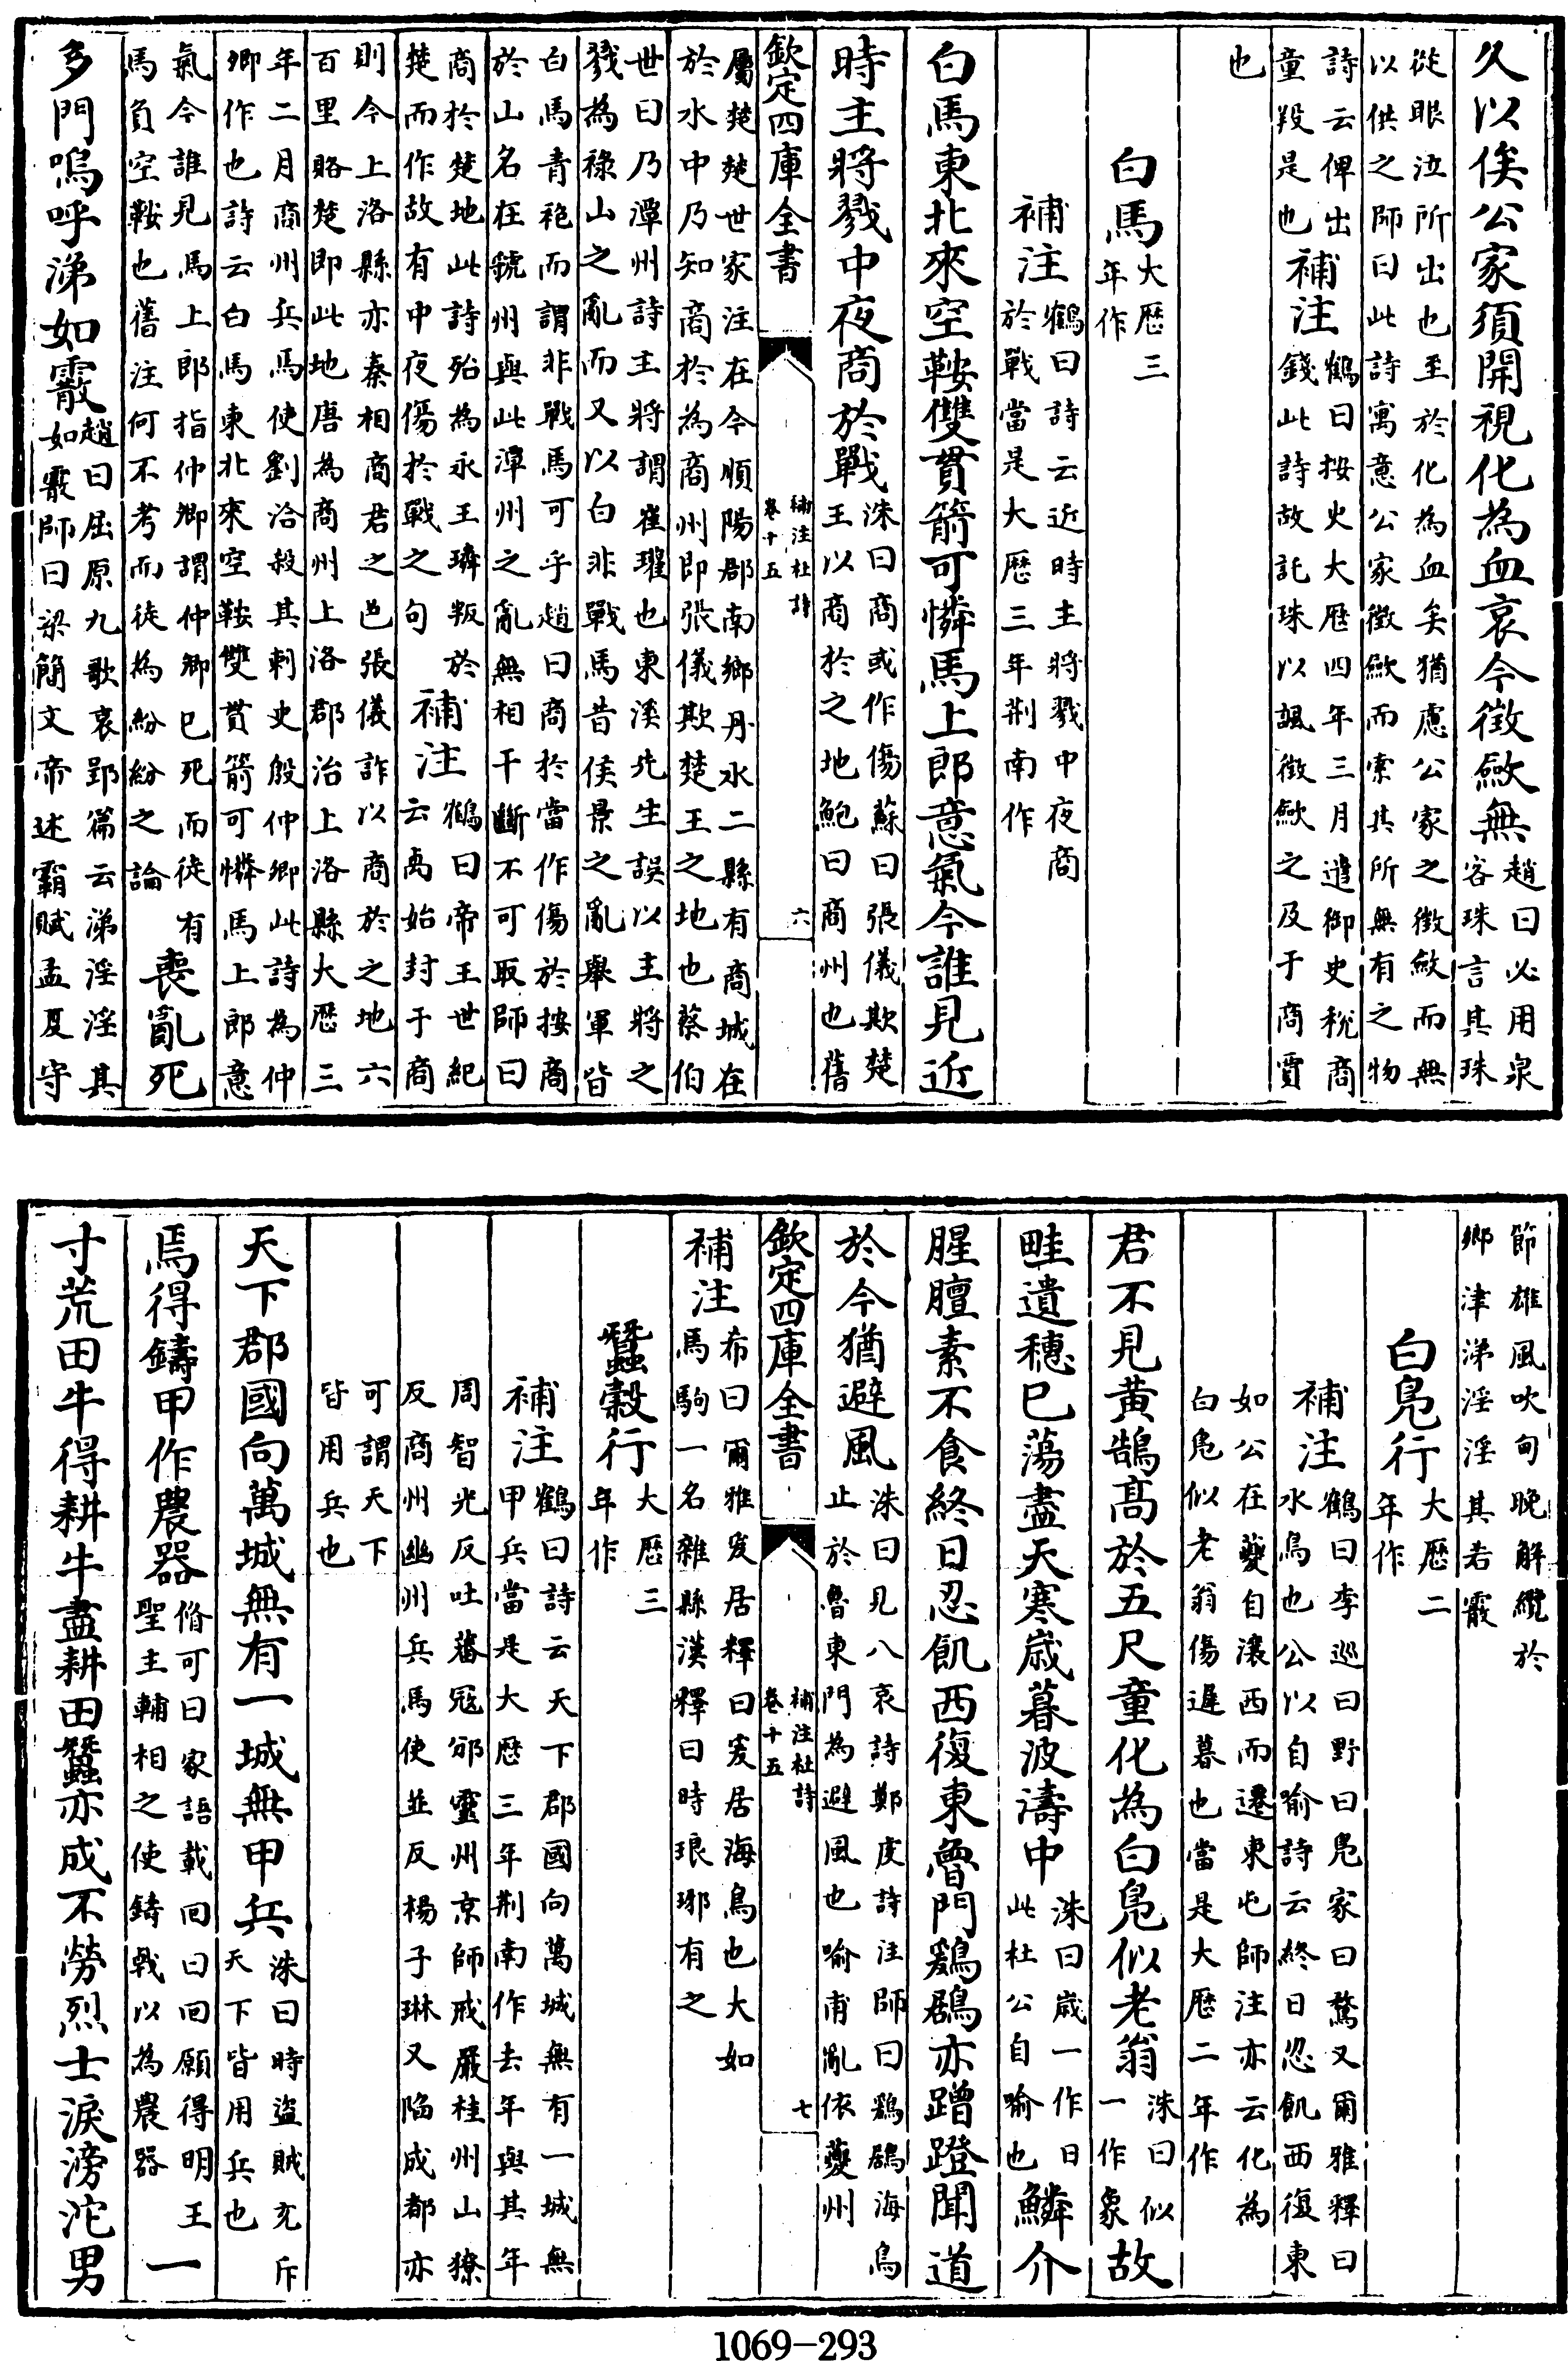 久以俟公家須開視化為血哀今徵歛無趙曰必用泉客珠言其珠
從眼泣所出也至於化為血矣猶慮公家之徵斂而無以供之師曰此詩寓意公家徵歛而索其所無有之物
詩云俾出童羖是也補注鶴曰按史大厯四年三月遣御史稅商錢此詩故託珠以諷徵歛之及于商賈
也
白馬大厯三年作
補注鶴曰詩云近時主將戮中夜商於戰當是大厯三年荆南作
白馬東北來空鞍雙貫箭可憐馬上郎意氣今誰見近
時主將戮中夜商於戰洙曰商或作傷蘇曰張儀欺楚王以商於之地鮑曰商州也舊
欽定四庫全書 補注杜詩卷十五 六
屬楚楚世家注在今順陽郡南鄉丹水二縣有商城在於水中乃知商於為商州即張儀欺楚王之地也蔡伯
世曰乃潭州詩主將謂崔瓘也東溪先生誤以主將之戮為祿山之亂而又以白非戰馬昔侯景之亂舉軍皆
白馬青袍而謂非戰馬可乎趙曰商於當作傷於按商於山名在虢州與此潭州之亂無相干斷不可取師曰
商於楚地此詩殆為永王璘叛於楚而作故有中夜傷於戰之句補注鶴曰帝王世紀云禹始封于商
則今上洛縣亦秦相商君之邑張儀詐以商於之地六百里賂楚即此地唐為商州上洛郡治上洛縣大厯三
年二月商州兵馬使劉洽殺其刺史殷仲卿此詩為仲卿作也詩云白馬東北來空鞍雙貫箭可憐馬上郎意
氣今誰見馬上郎指仲卿謂仲卿已死而徒有馬負空鞍也舊注何不考而徒為紛紛之論喪亂死
多門嗚呼涕如霰趙曰屈原九歌哀郢篇云涕淫淫其如霰師曰梁簡文帝述覊賦孟夏守
節雄風吹甸晚解纜於鄉津涕淫淫其若霰
白鳬行大厯二年作
補注鶴曰李巡曰野曰鳬家曰鶩又爾雅釋曰水鳥也公以自喻詩云終日忍飢西復東
如公在夔自瀼西而遷東屯師注亦云化為白鳬似老翁傷遲暮也當是大厯二年作
君不見黃鵠髙於五尺童化為白鳬似老翁洙曰似一作象故
畦遺穗已蕩盡天寒嵗暮波濤中洙曰嵗一作日此杜公自喻也鱗介
腥膻素不食終日忍飢西復東魯門鶢鶋亦蹭蹬聞道
於今猶避風洙曰見八哀詩鄭虔詩注師曰鶢鶋海鳥止於魯東門為避風也喻甫亂依夔州
欽定四庫全書 補注杜詩卷十五 七
補注希曰爾雅爰居釋曰爰居海鳥也大如馬駒一名雜縣漢釋曰時琅琊有之
蠶穀行大厯三年作
補注鶴曰詩云天下郡國向萬城無有一城無甲兵當是大厯三年荆南作去年與其年
周智光反吐蕃冦邠靈州京師戒嚴桂州山獠反商州幽州兵馬使並反楊子琳又陷成都亦
可謂天下皆用兵也
天下郡國向萬城無有一城無甲兵洙曰時盗賊充斥天下皆用兵也
焉得鑄甲作農器脩可曰家語載回曰回願得明王聖主輔相之使鑄戟以為農器一
寸荒田牛得耕牛盡耕田蠶亦成不勞烈士淚滂沱男
1069-293